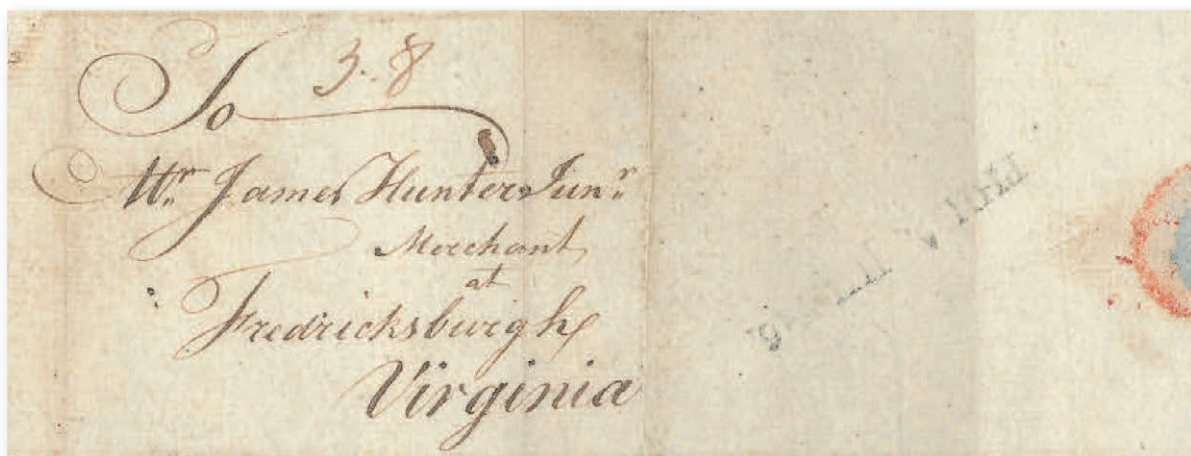 3..8
To
Mr. James Hunter Junr.
Merchant
at
Fredricksburgh
Virginia